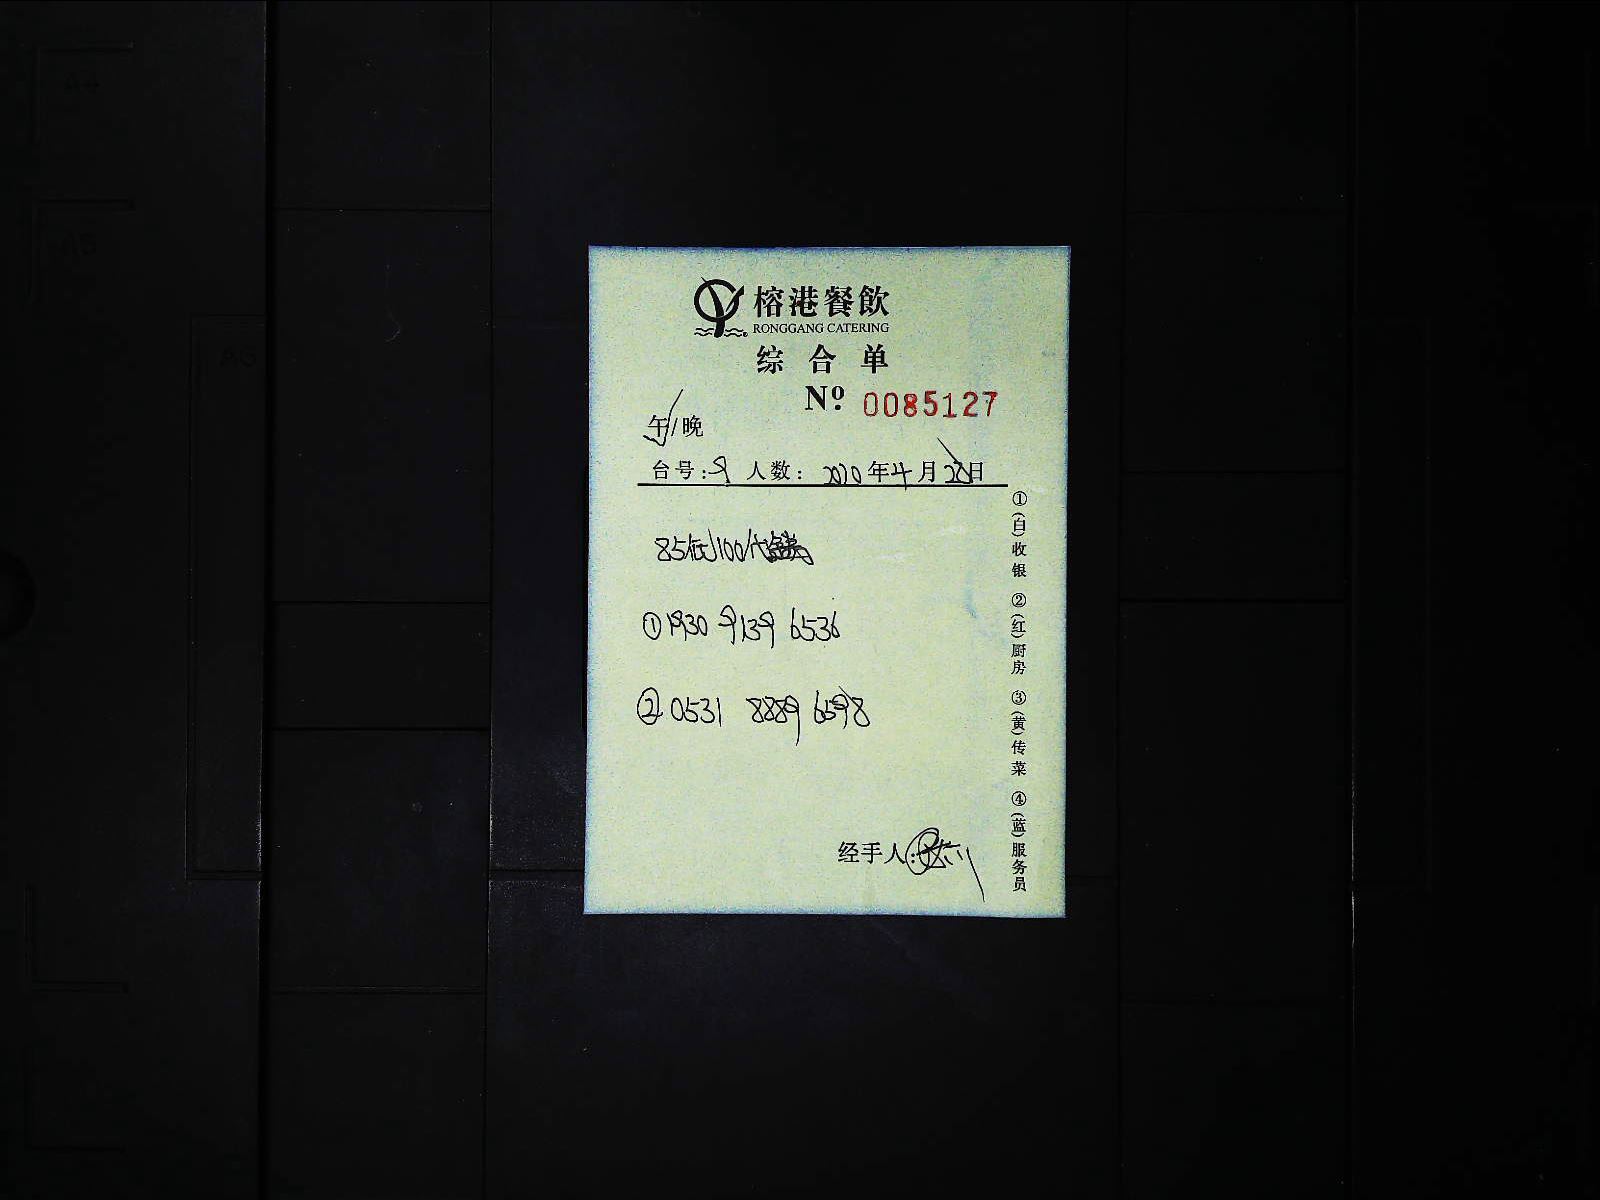 榕港餐飲
RONGGANG CATERING
综合单
Nº 0085127
午/晚
台号:9 人数: 2020年4月28日
85低100代金券
①1930 9139 6536
②0531 8889 6598
经手人:
①(白)收银 ②(红)厨房 ③(黄)传菜 ④(蓝)服务员